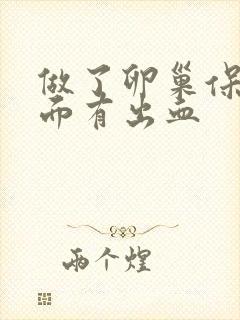 做了卵巢保
而有出血
两个煌